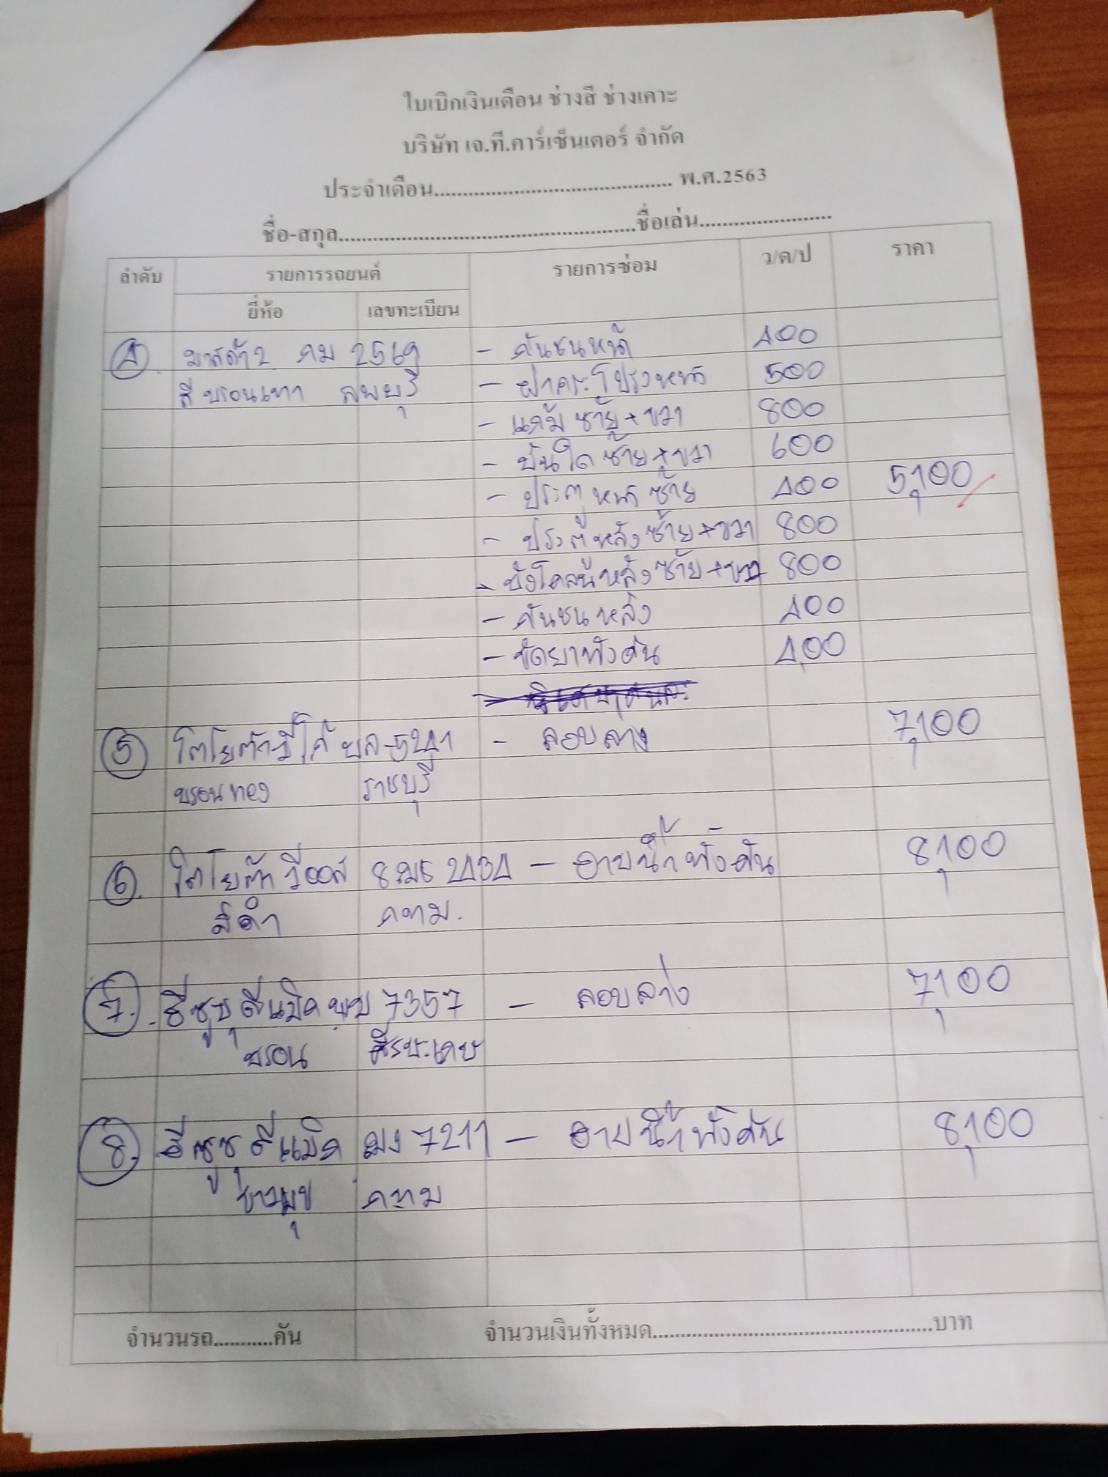 ใบเบิกเงินเดือน ช่างสี ช่างเคาะ
บริษัท เจ.ที.คาร์เซ็นเตอร์ จำกัด
ประจำเดือน............................................ พ.ศ.2563
ชื่อ-สกุล......................................................ชื่อเล่น........................
ลำดับ รายการรถยนต์ รายการซ่อม ว/ด/ป ราคา
ยี่ห้อ เลขทะเบียน
4 มาสด้า2 คม 2569 - กันชนหน้า 400
สีบรอนเทา ลพบุรี - ฝากระโปรงหน้า 500
- แก้มซ้าย+ขวา 800
- บันใดซ้าย+ขวา 600
- ประตูหน้าซ้าย 400 5,100
- ประตูหลังซ้าย+ขวา 800
- บังโคลนหลังซ้าย+ขวา 800
- กันชนหลัง 400
- ขัดยาทั้งคัน 400
5 โตโยต้าวีโก้ - ลอบลาง 7,100
บรอนทอง ราชบุรี
6. โตโยต้าวีออส - อาบน้ำทั้งคัน 8,100
สีดำ กทม.
7. อีซูซุดีแม็ค 7357 - ลอบล่าง 7,100
บรอน ศีรษะเกษ
8. อีซูซุดีแม็ค 7211 - อาบน้ำทั้งคัน 8,100
ขาวมุข กทม
จำนวนรถ...........คัน จำนวนเงินทั้งหมด....................................................บาท